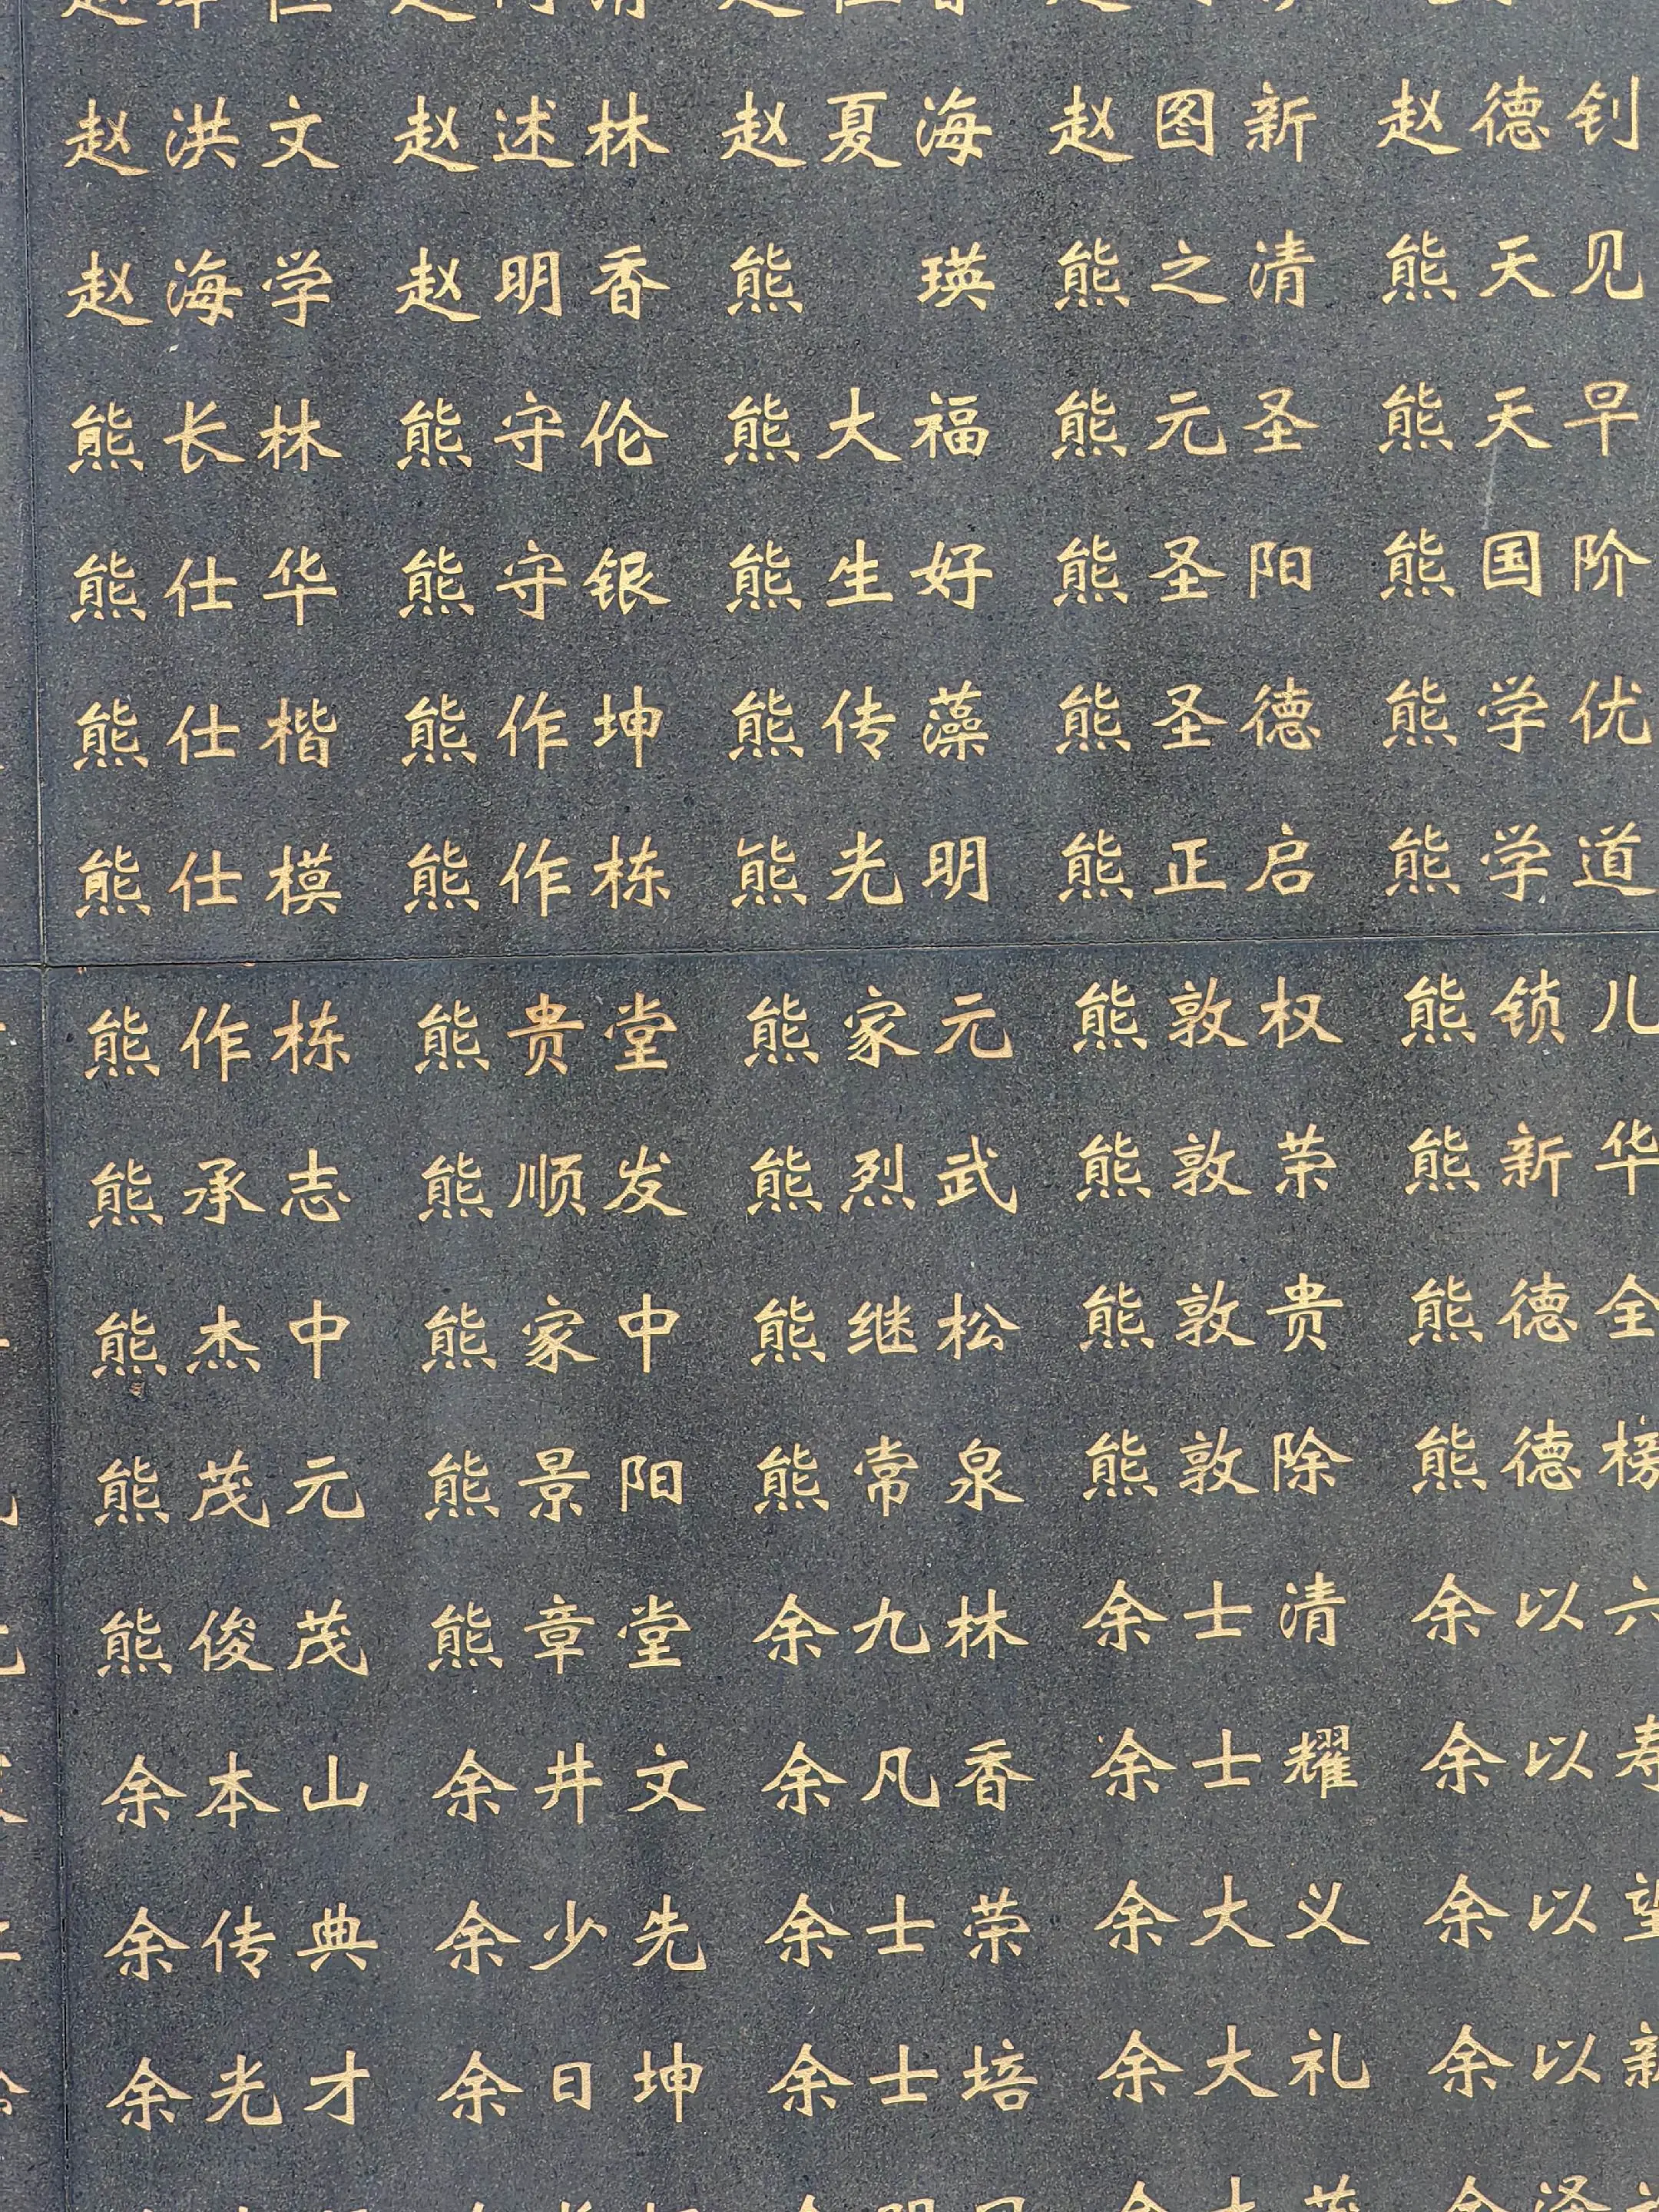 赵洪文 赵述林 赵夏海 赵图新 赵德钊
赵海学 赵明香 熊 瑛 熊之清 熊天见
熊长林 熊守伦 熊大福 熊元圣 熊天早
熊仕华 熊守银 熊生好 熊圣阳 熊国阶
熊仕楷 熊作坤 熊传藻 熊圣德 熊学优
熊仕模 熊作栋 熊光明 熊正启 熊学道
熊作栋 熊贵堂 熊家元 熊敦权 熊锁儿
熊承志 熊顺发 熊烈武 熊敦荣 熊新华
熊杰中 熊家中 熊继松 熊敦贵 熊德全
熊茂元 熊景阳 熊常泉 熊敦除 熊德榜
熊俊茂 熊章堂 余九林 余士清 余以六
余本山 余井文 余凡香 余士耀 余以寿
余传典 余少先 余士荣 余大义 余以望
余光才 余日坤 余士培 余大礼 余以新